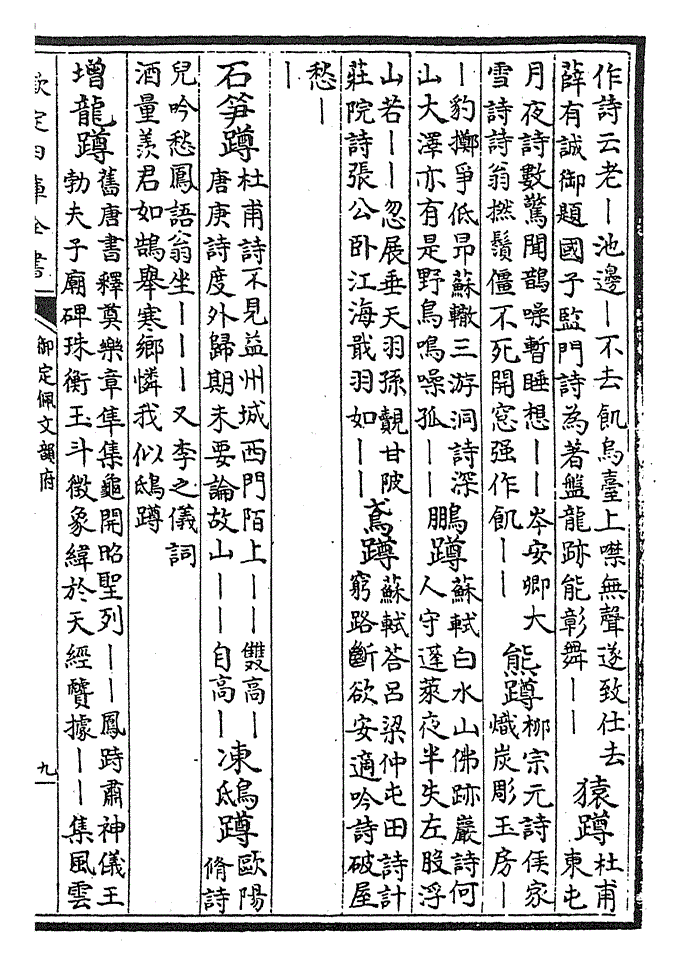 作詩云老丨池邊丨不去飢烏臺上噤無聲遂致仕去
薛有誠御題國子監門詩為著盤龍跡能彰舞丨丨
猿蹲
杜甫
東屯
月夜詩數驚聞鵲噪暫睡想丨丨岑安卿大
雪詩詩翁撚鬚僵不死開窓强作飢丨丨
熊蹲
柳宗元詩侯家
熾炭彫玉房丨
丨豹擲爭低昂蘇轍三游洞詩深
山大澤亦有是野鳥鳴噪孤丨丨
鵬蹲
蘇軾白水山佛跡巖詩何
人守蓬萊夜半失左股浮
山若丨丨忽展垂天羽孫覿甘陂
莊院詩張公卧江海戢羽如丨丨
鳶蹲
蘇軾荅呂梁仲屯田詩計
窮路斷欲安適吟詩破屋
愁丨
丨
石笋蹲
杜甫詩不見益州城西門陌上丨丨丨雙高丨
唐庚詩度外歸期未要論故山丨丨自高丨
凍鴟蹲
歐陽
脩詩
兒吟愁鳳語翁坐丨丨丨又李之儀詞
酒量羨君如鵠舉寒鄉憐我似鴟蹲
增龍蹲
舊唐書釋奠樂章隼集龜開昭聖列丨丨鳳跱肅神儀王
勃夫子廟碑珠衡玉斗徵象緯於天經贙據丨丨集風雲
欽定四庫全書
御定佩文韻府
九